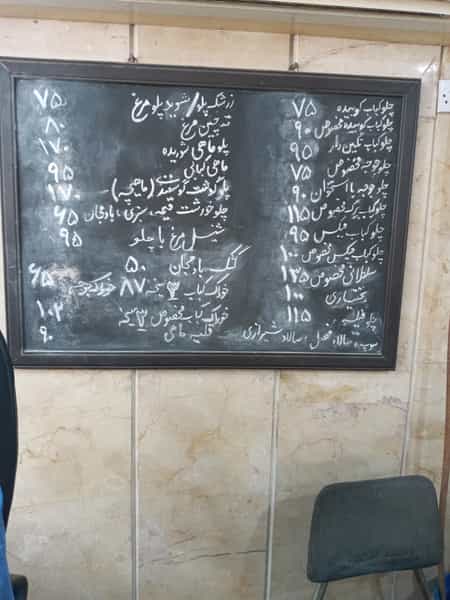 چلوکباب کوبیده ۷۵
چلوکباب کوبیده مخصوص ۹۰
چلوکباب نگین دار ۹۵
چلوجوجه مخصوص ۷۵
چلوجوجه با استخوان ۹۰
چلوکباب برگ مخصوص ۱۱۵
چلوکباب میکس ۹۵
چلوکباب میکس مخصوص ۱۰۰
سلطانی مخصوص ۱۳۵
بختیاری ۱۰۰
چلو فیله ۱۱۵
سوپ، سالاد فصل، سالاد شیرازی
زرشک پلو/شوید پلو مرغ ۷۵
ته چین مرغ ۸۰
پلو ماهی شوریده ۱۷۰
ماهی کبابی ۹۵
پلو گوشت گوسفند (ماهیچه) ۱۷۰
چلوخورشت قیمه، سبزی، بادمجان ۶۵
شنیسل مرغ با چلو ۹۵
کشک بادمجان ۵۰
خوراک کباب ۳ سیخه ۸۷ خوراک جوجه ۶۵
خوراک کباب مخصوص ۳ سیخه ۱۰۲
قلیه ماهی ۹۰